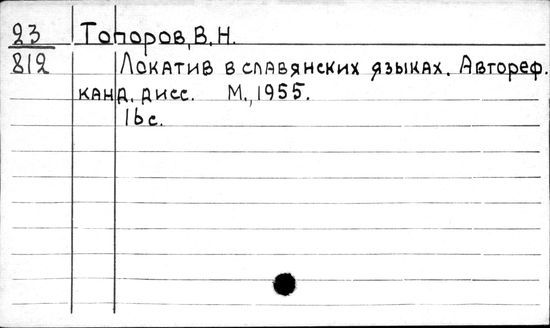 23 Топоров, В.Н.
812 Локатив в славянских языках. Автореф.
канд. дисс. М., 1955.
16 с.